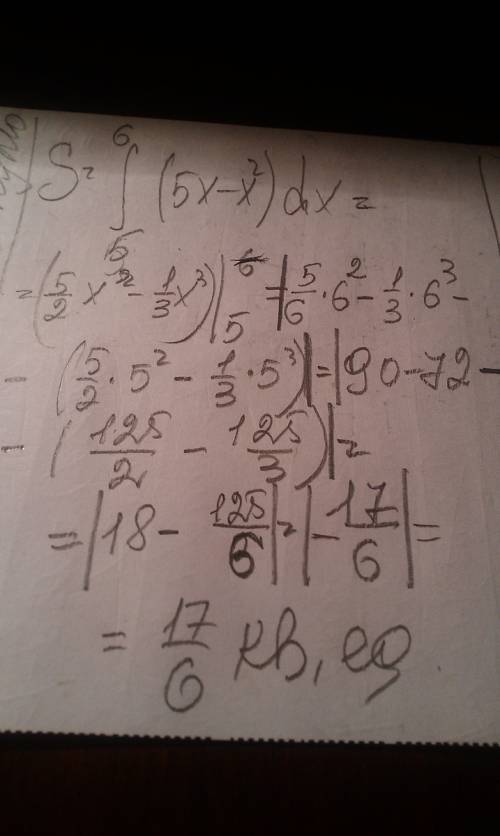 S = ∫₅⁶ (5x - x²) dx =
= (5/2 x² - 1/3 x³) |₅⁶ = |5/6 · 6² - 1/3 · 6³ -
- (5/2 · 5² - 1/3 · 5³)| = |90 - 72 -
- (125/2 - 125/3)| =
= |18 - 125/6| = |- 17/6| =
= 17/6 кв, ед.